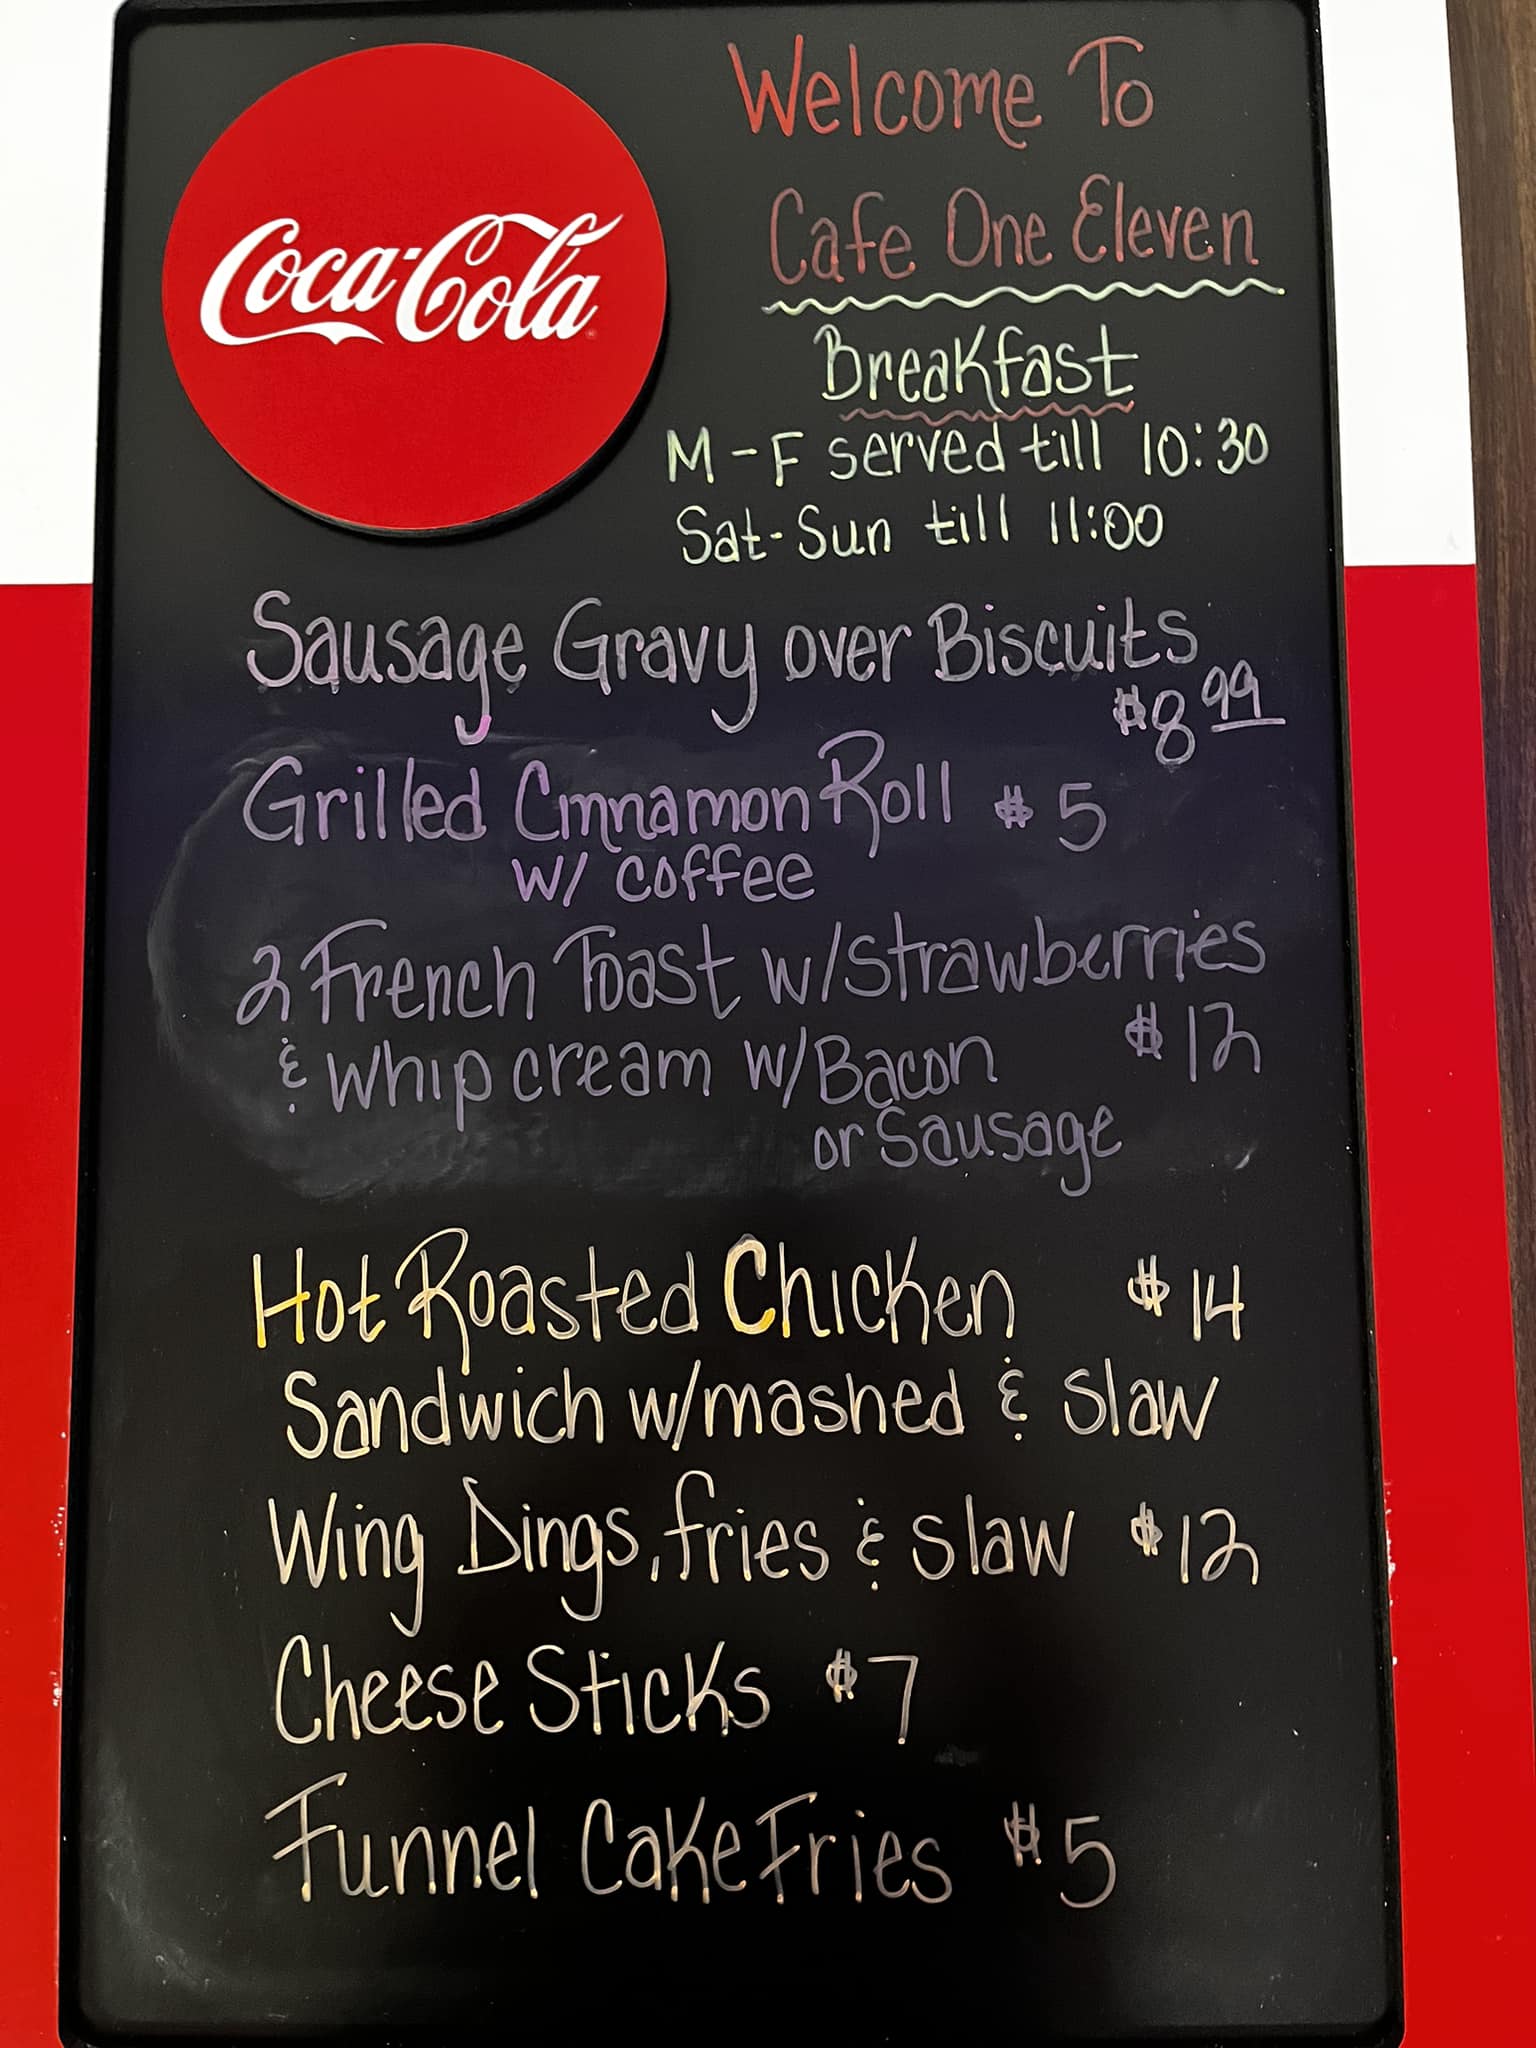 Coca-Cola
Welcome To
Cafe One Eleven
Breakfast
M-F served till 10:30
Sat-Sun till 11:00
Sausage Gravy over Biscuits
$8.99
Grilled Cinnamon Roll $5
w/ coffee
2 French Toast w/strawberries
& whip cream w/Bacon $12
or Sausage
Hot Roasted Chicken $14
Sandwich w/mashed & slaw
Wing Dings, fries & slaw $12
Cheese Sticks $7
Funnel Cake Fries $5